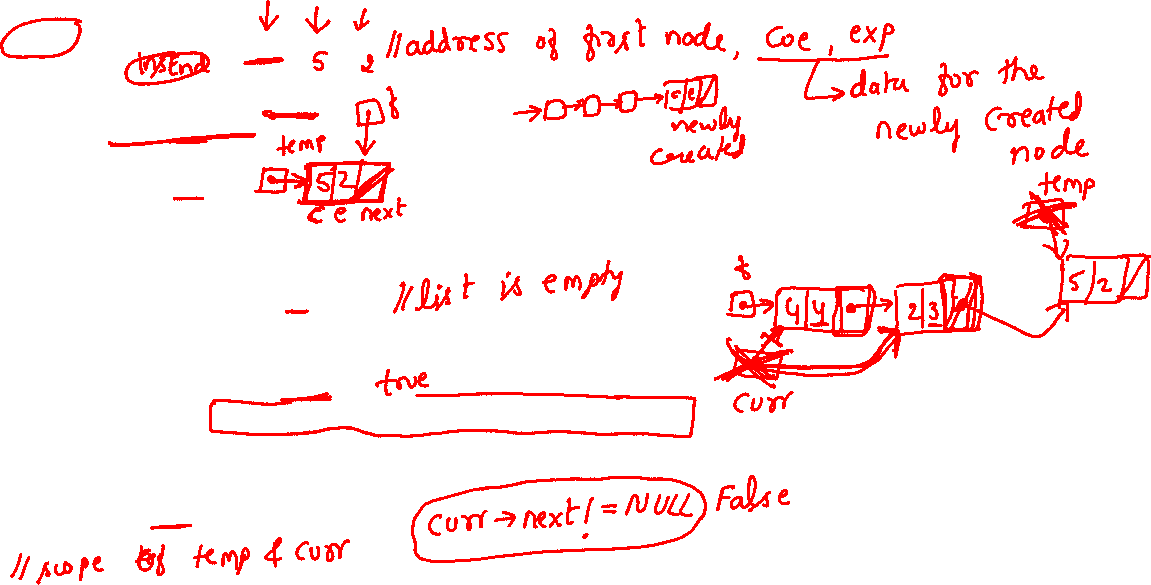 InsEnd 5 2 //address of first node, coe, exp
data for the
newly created
node
f
c e
newly
created
temp
5 2
c e next
temp
5 2
//list is empty
f
4 4 2 3
curr
true
curr→next!=NULL False
//scope of temp & curr